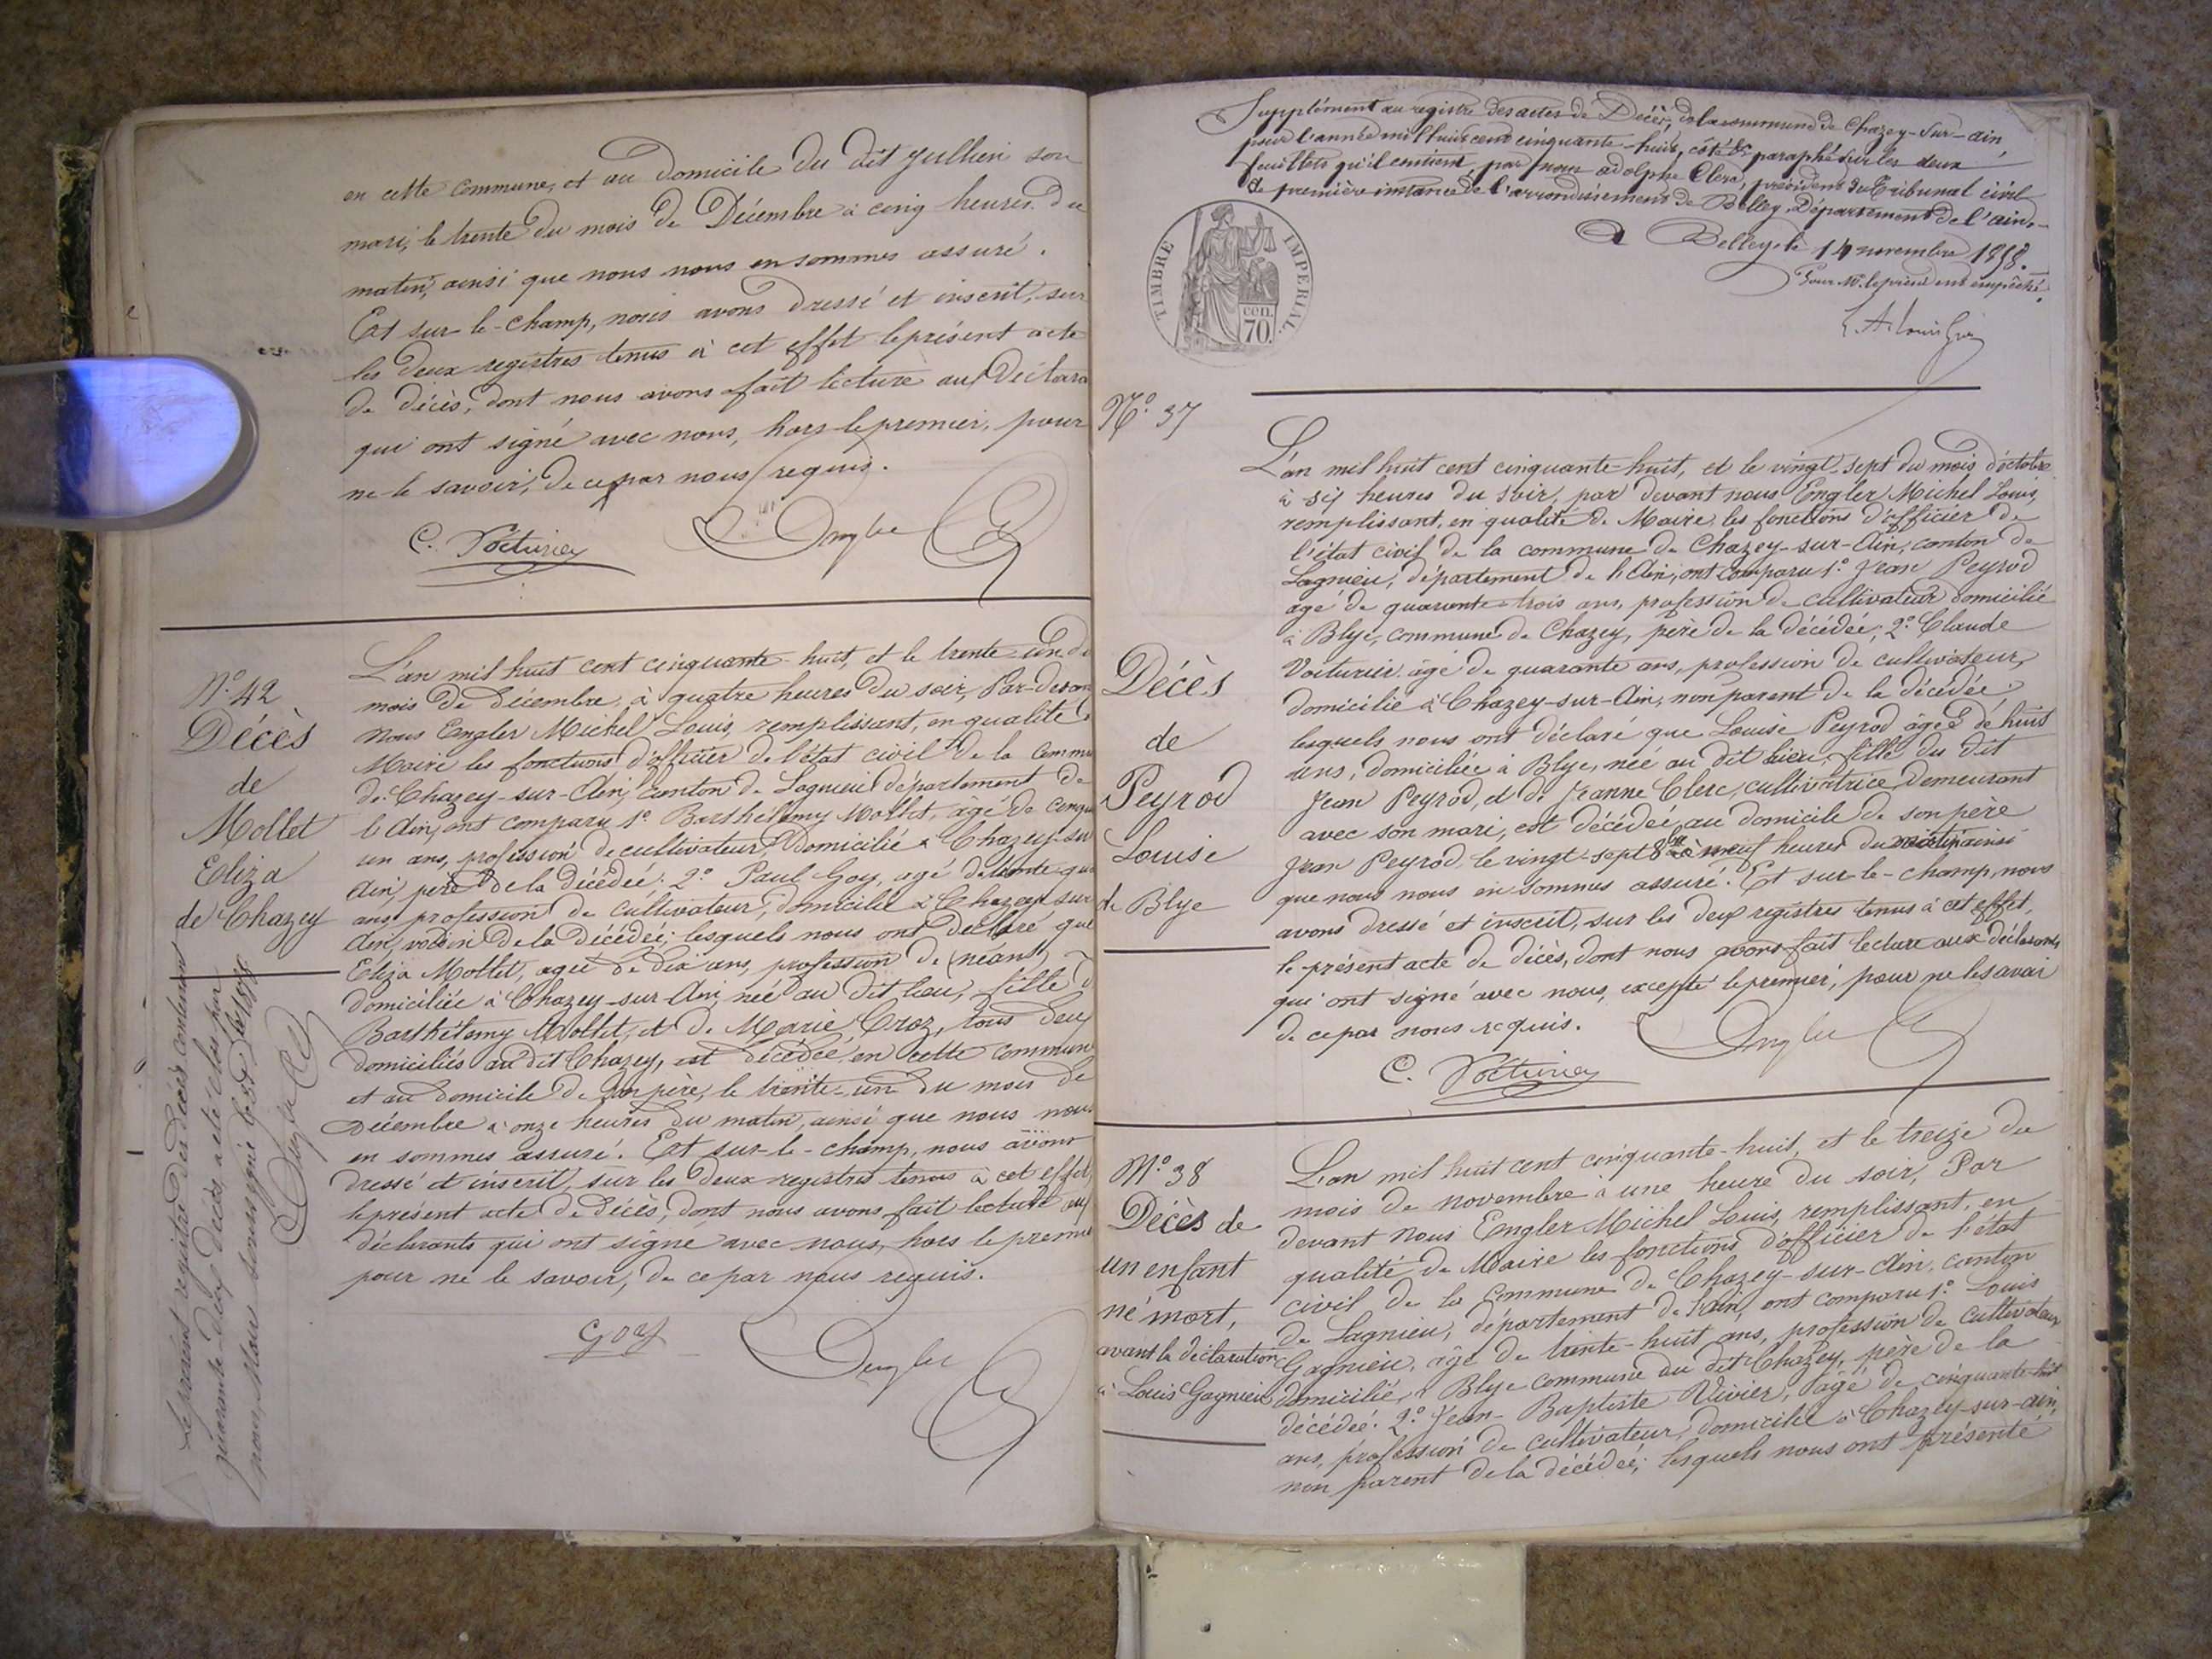 en cette commune, et au domicile du dit Jullien son
mari, le trente du mois de Décembre à cinq heures du
matin, ainsi que nous nous en sommes assuré.
Et sur-le-champ, nous avons dressé et inscrit, sur
les deux registres tenus à cet effet le présent acte
de décès, dont nous avons fait lecture aux Déclara
qui ont signé avec nous, hors le premier, pour
ne le savoir, de ce par nous requis.
C. Voiturier Engler
N.o 42
Décès
de
Mollet
Eliza
de Chazey
L'an mil huit cent cinquante-huit, et le trente-un du
mois de Décembre, à quatre heures du soir, Par-devan
nous Engler Michel Louis, remplissant, en qualité de
Maire les fonctions d'officier de l'état civil de la Commu
de Chazey-sur-Ain, Canton de Lagnieu département de
l'Ain, ont comparu 1.o Barthélemy Mollet, âgé de cinqu
un ans, profession de cultivateur domicilié à Chazey-su
Ain, père de la décédée; 2.o Paul Goy, agé de trente qua
ans profession de cultivateur, domicilié à Chazey sur
Ain, voisin de la Décédée; lesquels nous ont déclaré que
Eliza Mollet, agée de dix ans, profession de (néant)
domiciliée à Chazey-sur-Ain, née au dit lieu, fille d
Barthélemy Mollet, et de Marie Croz, tous deux
domiciliés au dit Chazey, est décédée, en cette commun
et au domicile de son père, le trente-un du mois de
Décembre à onze heures du matin, ainsi que nous nous
en sommes assuré. Et sur-le-champ, nous avons
dressé et inscrit, sur les deux registres tenus à cet effet,
le présent acte de décès, dont nous avons fait lecture aux
déclarants qui ont signé avec nous, hors le premie
pour ne le savoir, de ce par nous requis.
Goy Engler
Le présent registre des décès contenant
quarante-deux décès, a été clos par
nous, Maire soussigné le 31 Xbre 1858.
Engler
Supplément au registre des actes de Décès, de la commune de Chazey-sur-ain,
pour l'année mil huit cent cinquante-huit, côté & paraphé sur les deux
feuillets qu'il contient, par nous adolphe Clerc, président du Tribunal civil
de première instance de l'arrondissement de Belley, Département de l'ain.
A Belley le 14 novembre 1858.
Pour Mr. le président empêché,
TIMBRE IMPERIAL
cen.
70.
N.o 37
Décès
de
Peyrod
Louise
de Blye
L'an mil huit cent cinquante-huit, et le vingt-sept du mois d'octobre
à six heures du soir, par devant nous Engler Michel Louis,
remplissant, en qualité de Maire, les fonctions d'officier de
l'état civil de la commune de Chazey-sur-Ain, canton de
Lagnieu, département de l'Ain, ont comparu 1.o Jean Peyrod
agé de quarante-trois ans, profession de cultivateur domicilié
à Blye, commune de Chazey, père de la décédée; 2.o Claude
Voiturier agé de quarante ans, profession de cultivateur,
domicilié à Chazey-sur-Ain, non parent de la décédée.
lesquels nous ont déclaré que Louise Peyrod âgée de huit
ans, domiciliée à Blye, née au dit lieu, fille du dit
Jean Peyrod, et de Jeanne Clerc, cultivatrice, demeurant
avec son mari, est décédée, au domicile de son père
Jean Peyrod le vingt-sept 8bre à neuf heures du matin ainsi
que nous nous en sommes assuré. Et sur-le-champ, nous
avons dressé et inscrit, sur les deux registres tenus à cet effet,
le présent acte de décès, dont nous avons fait lecture aux déclarants
qui ont signé avec nous, excepté le premier, pour ne le savoir
de ce par nous requis.
C. Voiturier Engler
N.o 38
Décès de
un enfant
né mort,
avant la déclaration
à Louis Gagnieu
L'an mil huit cent cinquante-huit, et le treize du
mois de novembre à une heure du soir, Par
devant nous Engler Michel Louis, remplissant, en
qualité de Maire les fonctions d'officier de l'état
civil de la Commune de Chazey-sur-Ain, canton
de Lagnieu, département de l'Ain, ont comparu 1.o Louis
Gagnieu, âgé de trente-huit ans, profession de cultivateur
domicilié à Blye commune du dit Chazey, père de la
décédée. 2.o Jean-Baptiste Vivier, âgé de cinquante-huit
ans, profession de cultivateur, domicilié à Chazey-sur-ain,
non parent de la décédée; lesquels nous ont présenté